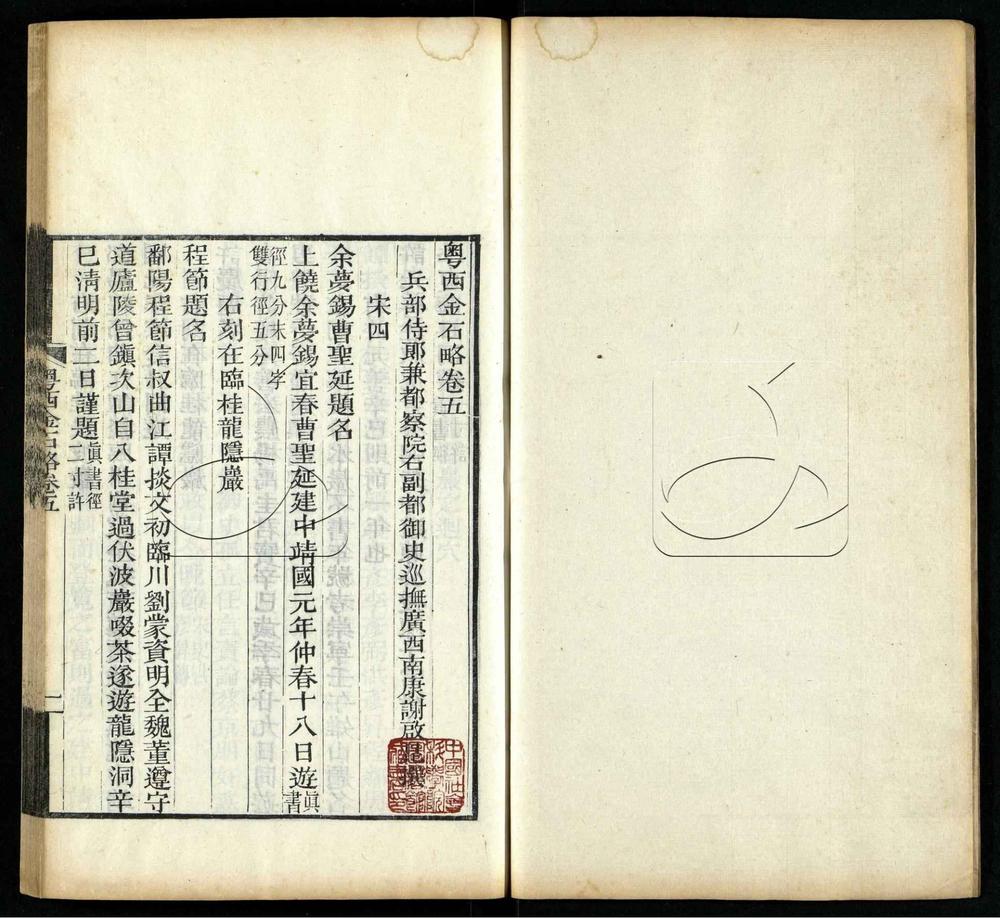 粤西金石略卷五
兵部侍郎兼都察院右副都御史巡撫廣西南康謝啟昆撰
宋四
余夢錫曹聖延題名
上饒余夢錫宜春曹聖延建中靖國元年仲春十八日遊眞書
徑九分末四字
雙行徑五分
右刻在臨桂龍隱巖
程節題名
鄱陽程節信叔曲江譚掞文初臨川劉蒙資明全魏董遵守
道廬陵曾鎭次山自八桂堂過伏波巖啜茶遂遊龍隱洞辛
巳淸明前一日謹題眞書徑寸許
粤西金石略卷五
一